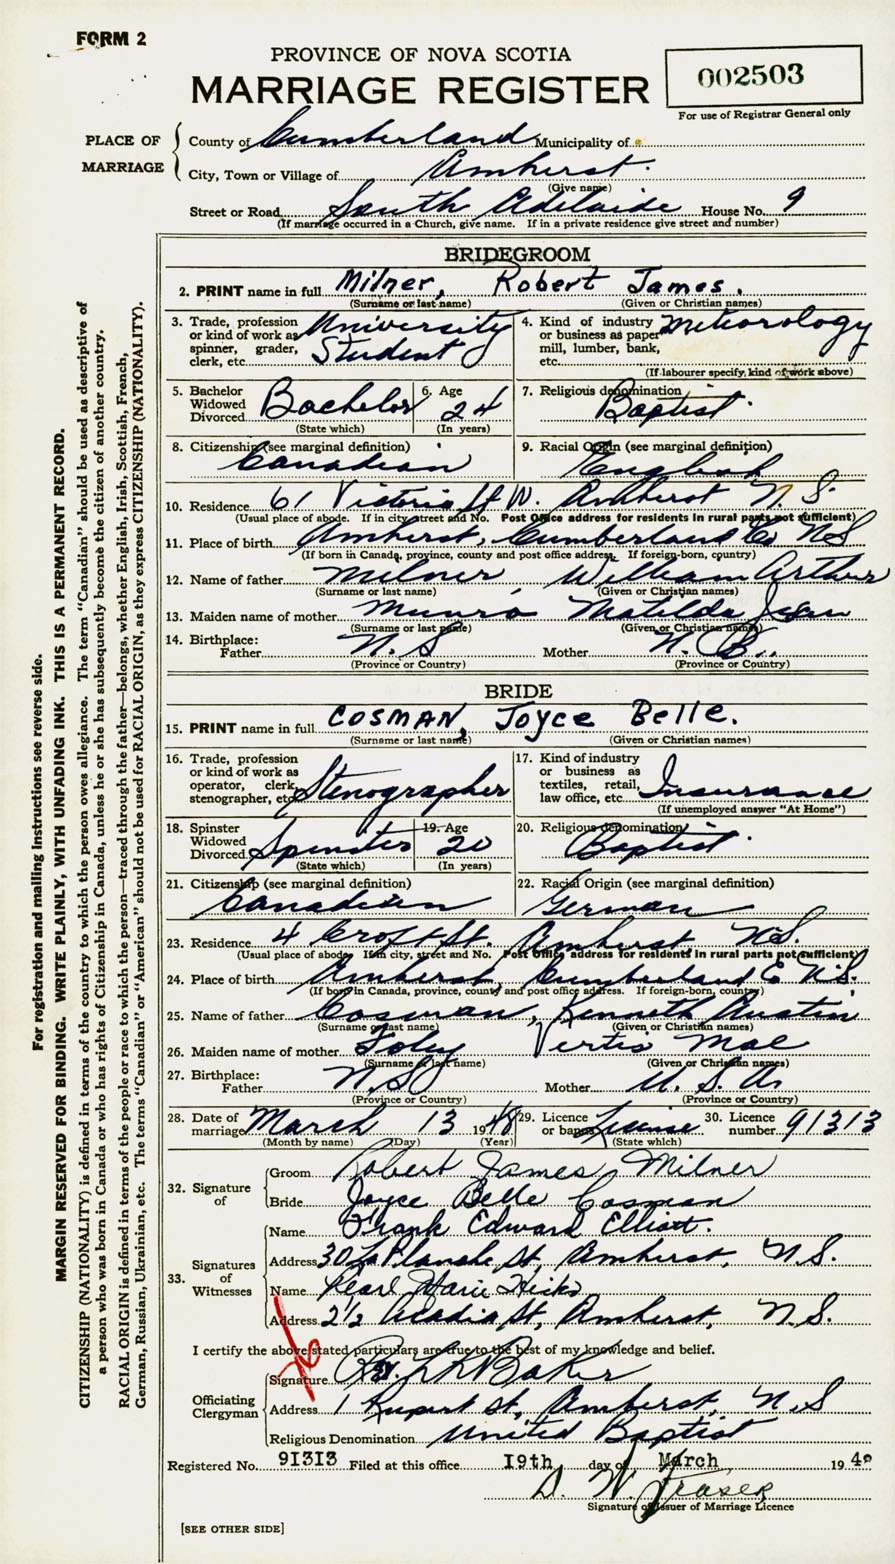 FORM 2
PROVINCE OF NOVA SCOTIA
MARRIAGE REGISTER
002503
For use of Registrar General only
PLACE OF MARRIAGE
County of Cumberland Municipality of
City, Town or Village of Amherst.
(Give name)
Street or Road South Adelaide House No. 9
(If marriage occurred in a Church, give name. If in a private residence give street and number)
BRIDEGROOM
2. PRINT name in full Milner, Robert James.
(Surname or last name) (Given or Christian names)
3. Trade, profession or kind of work as spinner, grader, clerk, etc. University Student
4. Kind of industry or business as paper mill, lumber, bank, etc. Meteorology
(If labourer specify, kind of work above)
5. Bachelor Widowed Divorced Bachelor
(State which)
6. Age 24
(In years)
7. Religious denomination Baptist.
8. Citizenship (see marginal definition) Canadian
9. Racial Origin (see marginal definition) English
10. Residence 61 Victoria St W. Amherst N. S.
(Usual place of abode. If in city, street and No. Post Office address for residents in rural parts not sufficient)
11. Place of birth Amherst, Cumberland Co N S
(If born in Canada, province, county and post office address. If foreign-born, country)
12. Name of father Milner, William Arthur
(Surname or last name) (Given or Christian names)
13. Maiden name of mother Munro Matilda Jean
(Surname or last name) (Given or Christian names)
14. Birthplace:
Father N. S Mother N. B.
(Province or Country) (Province or Country)
BRIDE
15. PRINT name in full COSMAN, Joyce Belle.
(Surname or last name) (Given or Christian names)
16. Trade, profession or kind of work as operator, clerk, stenographer, etc. Stenographer
17. Kind of industry or business as textiles, retail, law office, etc. Insurance
(If unemployed answer "At Home")
18. Spinster Widowed Divorced Spinster
(State which)
19. Age 20
(In years)
20. Religious denomination Baptist.
21. Citizenship (see marginal definition) Canadian
22. Racial Origin (see marginal definition) German
23. Residence 4 Croft St. Amherst N.S.
(Usual place of abode. If in city, street and No. Post Office address for residents in rural parts not sufficient)
24. Place of birth Amherst, Cumberland Co N.S.
(If born in Canada, province, county and post office address. If foreign-born, country)
25. Name of father Cosman, Kenneth Austin
(Surname or last name) (Given or Christian names)
26. Maiden name of mother Foley Vertis Mae
(Surname or last name) (Given or Christian names)
27. Birthplace:
Father N.S Mother U. S. A.
(Province or Country) (Province or Country)
28. Date of marriage March 13 1948
(Month by name) (Day) (Year)
29. Licence or banns License
(State which)
30. Licence number 91313
32. Signature of
Groom Robert James Milner
Bride Joyce Belle Cosman
33. Signatures of Witnesses
Name Frank Edward Elliott.
Address 30 La Planche St, Amherst, N.S.
Name Pearl Marie Hicks
Address 2½ Acadia St, Amherst, N.S.
I certify the above stated particulars are true to the best of my knowledge and belief.
Officiating Clergyman
Signature Rev. L K Baker
Address 1 Rupert St, Amherst, N.S
Religious Denomination United Baptist
Registered No. 91313 Filed at this office 19th day of March 194
D. W. Fraser
Signature of Issuer of Marriage Licence
[SEE OTHER SIDE]
For registration and mailing instructions see reverse side.
MARGIN RESERVED FOR BINDING. WRITE PLAINLY, WITH UNFADING INK. THIS IS A PERMANENT RECORD.
CITIZENSHIP (NATIONALITY) is defined in terms of the country to which the person owes allegiance. The term "Canadian" should be used as descriptive of
a person who was born in Canada or who has rights of Citizenship in Canada, unless he or she has subsequently become the citizen of another country.
RACIAL ORIGIN is defined in terms of the people or race to which the person—traced through the father—belongs, whether English, Irish, Scottish, French,
German, Russian, Ukrainian, etc. The terms "Canadian" or "American" should not be used for RACIAL ORIGIN, as they express CITIZENSHIP (NATIONALITY).